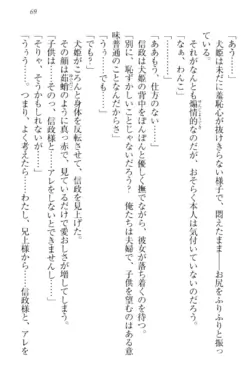 69
「あう……」
犬姫は未だに羞恥心が抜けきらない様子で、悶えたまま――お尻をふりふりと振っ
ている。
それがなんとも煽情的なのだが、おそらく本人は気付いていないのだろう。
「なぁ、わんこ」
「うぅっ……」
「ああもう、仕方のない……」
信政は犬姫の背中をぽんぽんと優しく撫でながら、彼女が落ち着くのを待つ。
「なにも、恥ずかしいことじゃないだろう? 俺たちは夫婦で、子供を望むのはある意
味普通のことなんだからさ」
「でも?」
「でも……」
犬姫がころんと身体を反転させて、信政のほうを見る。
その顔は茹蛸のように真っ赤で、見ているだけで愛おしさが増してしまう。
「子供は……そのっ、信政様と、アレをしないとできませんし……」
「そりゃ、そうかもしれないが……」
「うぅ……つまり、よく考えたら……わたし、兄上様から……信政様と、アレを